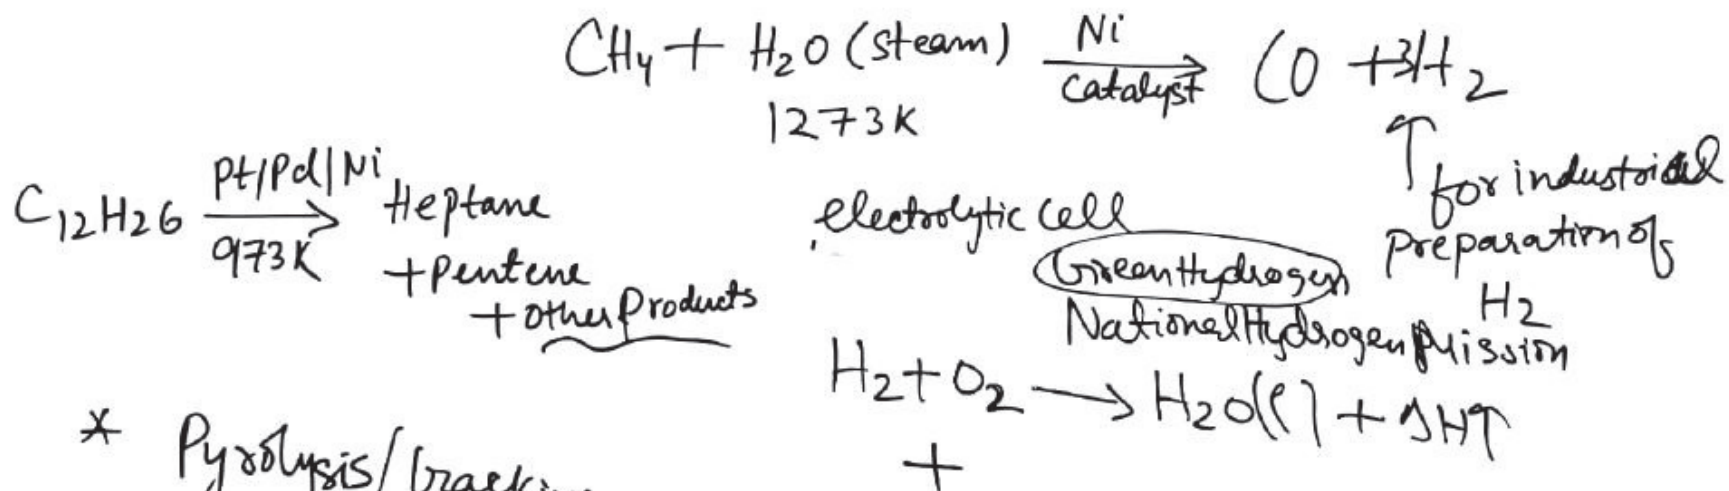 CH4 + H2O (steam) Ni catalyst → CO + 3H2
1273K
↑ for industrial
preparation of
H2
C12H26 Pt/Pd/Ni 973K → Heptane
+ Pentene
+ other Products
electrolytic cell
Green Hydrogen
National Hydrogen Mission
H2 + O2 → H2O(l) + ΔH↑
+
* Pyrolysis/Cracking